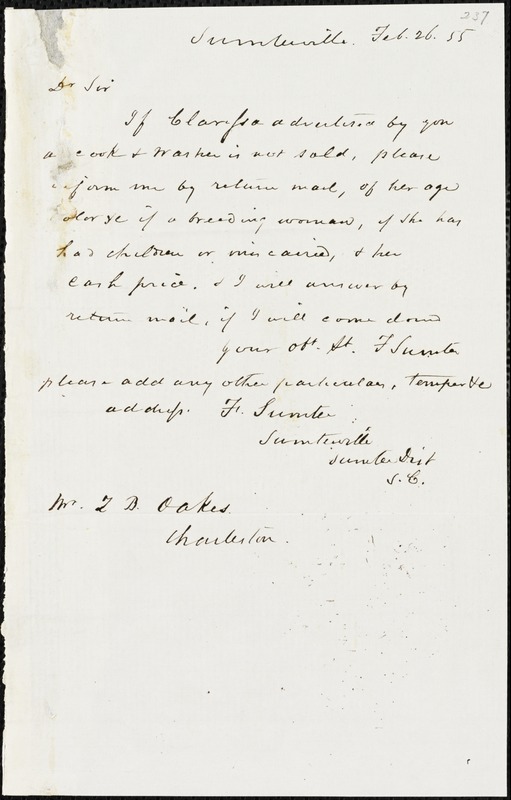 237
Sumterville. Feb. 26. 55
Dr Sir
If Clarissa advertised by you
a cook & washer is not sold, please
inform me by return mail, of her age
color &c if a breeding woman, if she has
had children or miscarried, & her
cash price. & I will answer by
return mail, if I will come down
your obt. St. F Sumter
please add any other particulars, temper &c
address. F. Sumter
Sumterville
Sumter Dist
S.C.
Mr. Z B. Oakes.
Charleston.